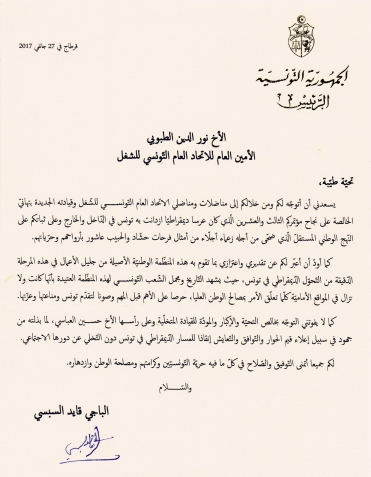 قرطاج في 27 جانفي 2017
الجمهورية التونسية
الرئيس
الأخ نور الدين الطبوبي
الأمين العام للاتحاد العام التونسي للشغل
تحيّة طيّبة،
يسعدني أن أتوجّه لكم ومن خلالكم إلى مناضلات ومناضلي الاتحاد العام التونسي للشغل وقيادته الجديدة بتهانيّ
الخالصة على نجاح مؤتمركم الثالث والعشرين الّذي كان عرسا ديمقراطيّا ازدانت به تونس في الدّاخل والخارج وعلى ثباتكم على
النّهج الوطني المستقلّ الّذي ضحّى من أجله زعماء أجلّاء من أمثال فرحات حشّاد والحبيب عاشور بأرواحهم وحرّياتهم.
كما أودّ أن أعبّر لكم عن تقديري واعتزازي بما تقوم به هذه المنظّمة الوطنيّة الأصيلة من جليل الأعمال في هذه المرحلة
الدّقيقة من التحوّل الدّيمقراطي في تونس، حيث يشهد التّاريخ ومجمل الشّعب التّونسي لهذه المنظّمة العتيدة بأنّها كانت ولا
تزال في المواقع الأماميّة كلّما تعلّق الأمر بمصالح الوطن العليا، حرصا على الأهم قبل المهم وصونا لتقدّم تونس ومناعتها وعزّتها.
كما لا يفوتني التوجّه بخالص التحيّة والإكبار والمودّة للقيادة المتخلّية وعلى رأسها الأخ حسين العباسي، لما بذلته من
جهود في سبيل إعلاء قيم الحوار والتّوافق والتّعايش إنقاذا للمسار الدّيمقراطي في تونس دون التّخلي عن دورها الاجتماعي.
لكم جميعا أتمنى التّوفيق والصّلاح في كلّ ما فيه حريّة التّونسيّين وكرامتهم ومصلحة الوطن وازدهاره.
والسّلام
الباجي قايد السبسي